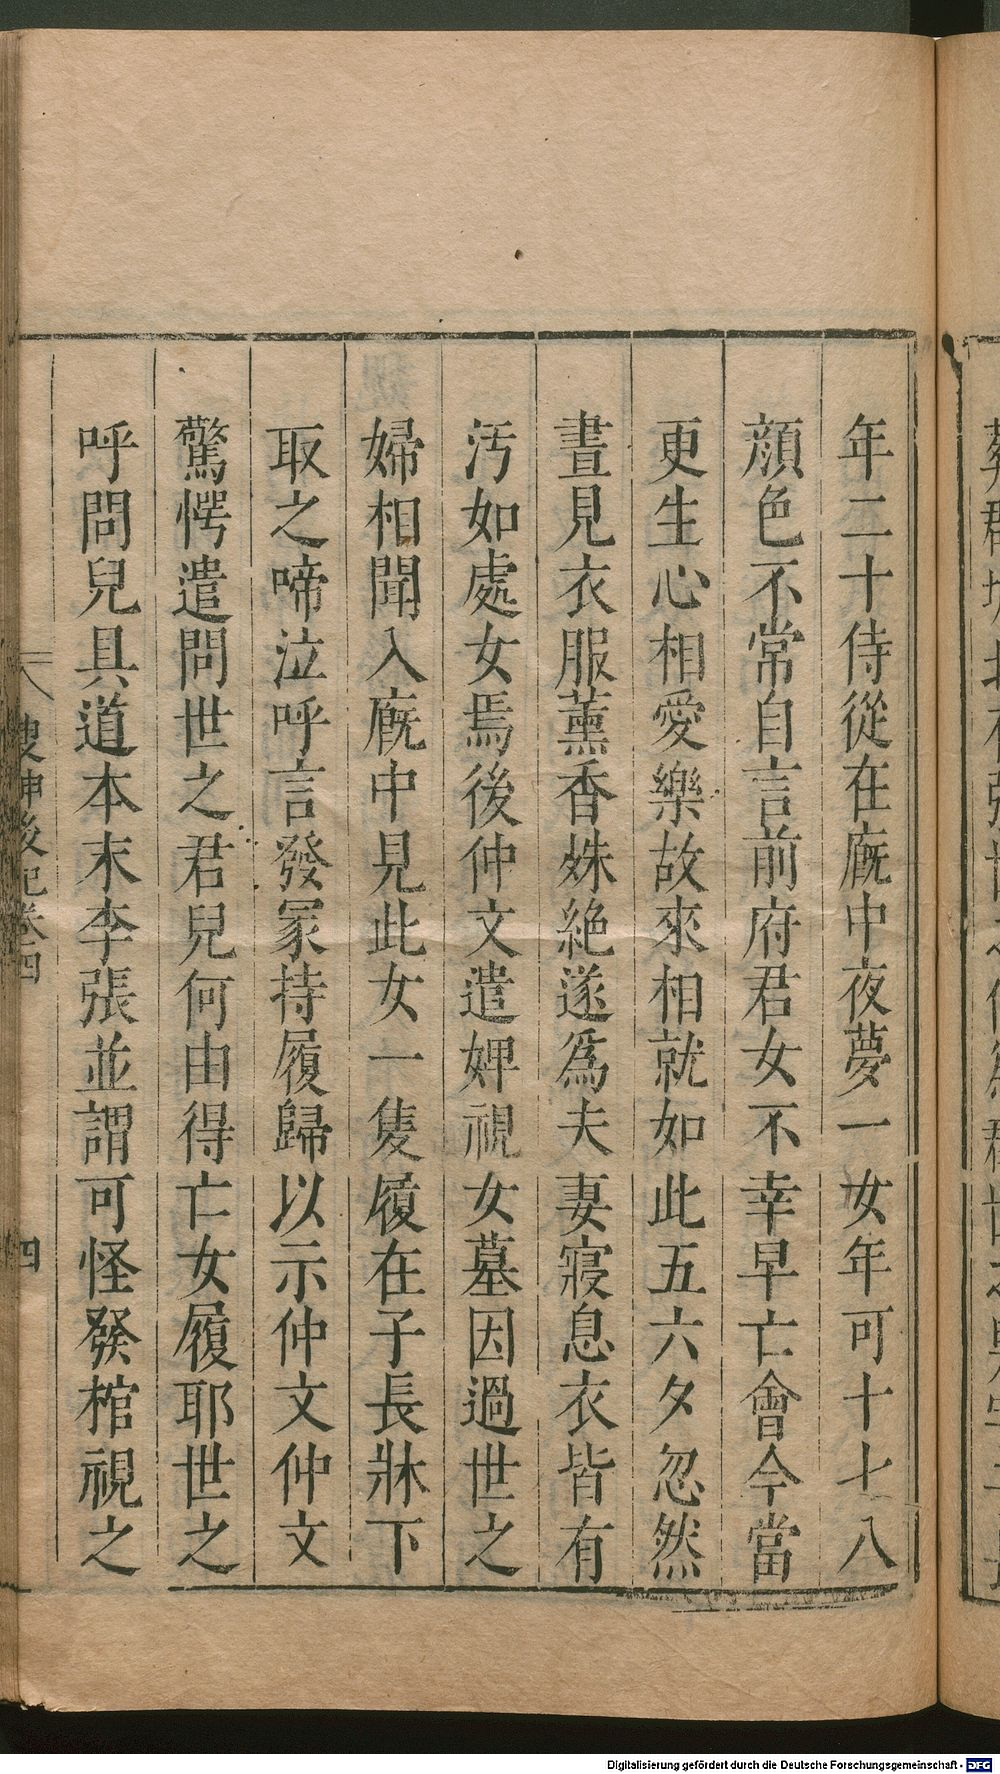 年二十侍從在廐中夜夢一女年可十七八
顔色不常自言前府君女不幸早亡會今當
更生心相愛樂故來相就如此五六夕忽然
晝見衣服薰香姝絶遂爲夫妻寢息衣皆有
汚如處女焉後仲文遣婢視女墓因過世之
婦相聞入廐中見此女一隻履在子長牀下
取之啼泣呼言發冢持履歸以示仲文仲文
驚愕遣問世之君兒何由得亡女履耶世之
呼問兒具道本末李張並謂可怪發棺視之
搜神後記卷四
四
Digitalisierung gefördert durch die Deutsche Forschungsgemeinschaft - DFG